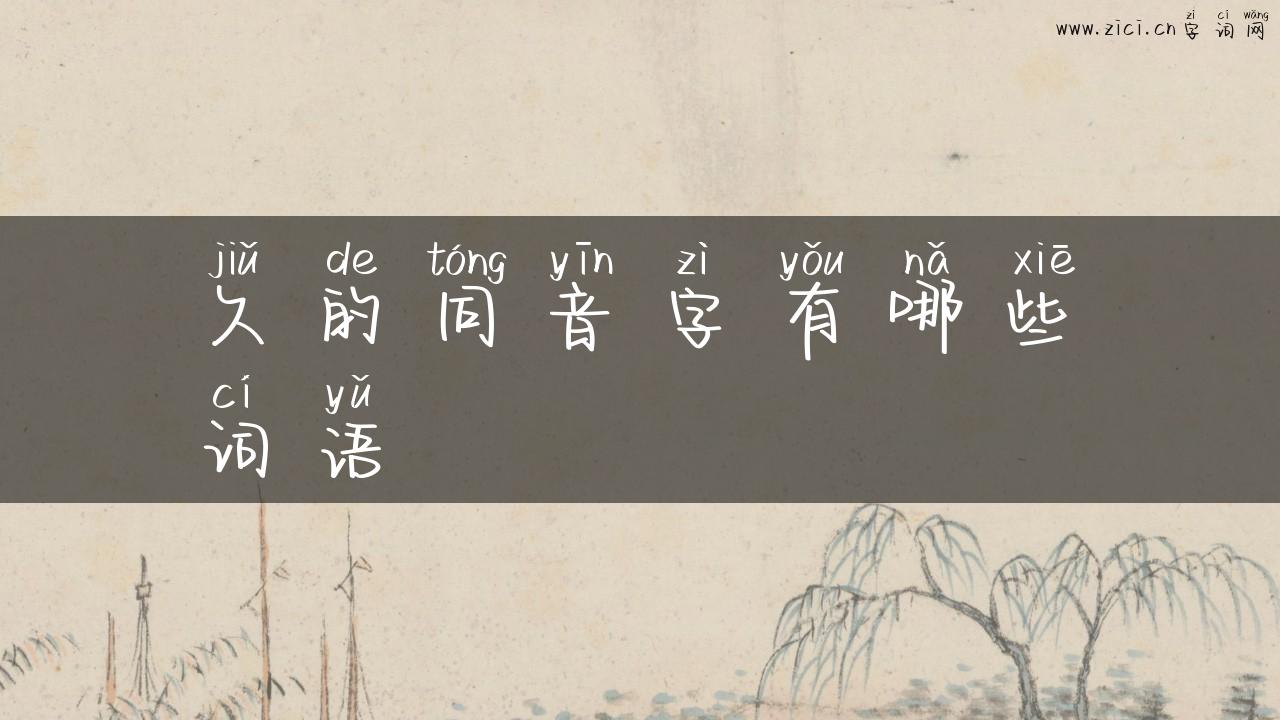 zì cí wǎng
www.zici.cn 字词网
jiǔ de tóng yīn zì yǒu nǎ xiē
久的同音字有哪些
cí yǔ
词语